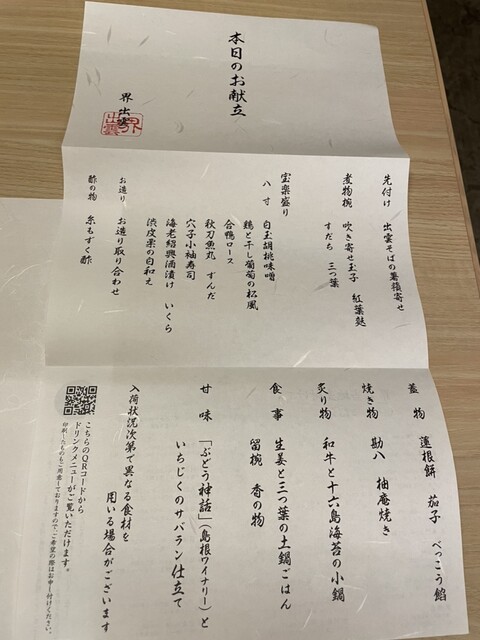 本日のお献立
界 出雲
界
出雲
先付け 出雲そばの薯蕷寄せ
煮物椀 吹き寄せ玉子 紅葉麩
すだち 三つ葉
宝楽盛り
八寸 白玉胡桃味噌
鶏と干し葡萄の松風
合鴨ロース
秋刀魚丸 ずんだ
穴子小袖寿司
海老紹興酒漬け いくら
渋皮栗の白和え
お造り お造り取り合わせ
酢の物 糸もずく酢
蓋物 蓮根餅 茄子 べっこう餡
焼き物 勘八 柚庵焼き
炙り物 和牛と十六島海苔の小鍋
食事 生姜と三つ葉の土鍋ごはん
留椀 香の物
甘味 「ぶどう神話」(島根ワイナリー)と
いちじくのサバラン仕立て
入荷状況次第で異なる食材を
用いる場合がございます
こちらのQRコードから
ドリンクメニューがご覧いただけます。
印刷したものもご用意しておりますので、ご希望の際はお申し付けください。